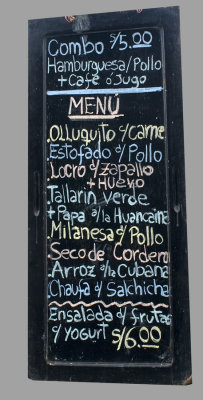 Combo S/5.00
Hamburguesa/Pollo
+ Café ó Jugo
MENÚ
.Olluquito c/Carne
Estofado d/ Pollo
Locro c/ zapallo
+ Huevo
.Tallarin Verde
+ Papa a/la Huancaina
.Milanesa d/ Pollo
.Seco de Cordero
.Arroz a/la Cubana
.Chaufa d/ Salchicha
.Ensalada d/ frutas
c/ YOGURT S/6.00